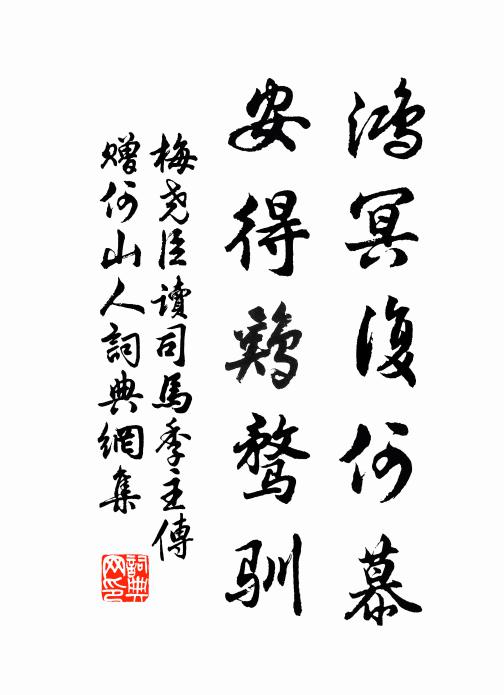 鴻冥復何慕
安得鷄鶩馴
梅堯臣讀司馬季主傳
贈何山人詞典網集
詞典
网印